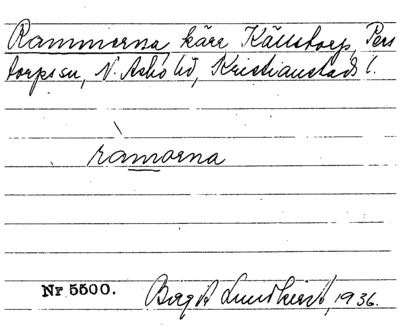 Rammorna, kärr, Källstorp, Pers
torps sn, N. Åsbo hd, Kristianstads l.
ràmorna
Nr 5500. Birgit Lundkvist, 1936.